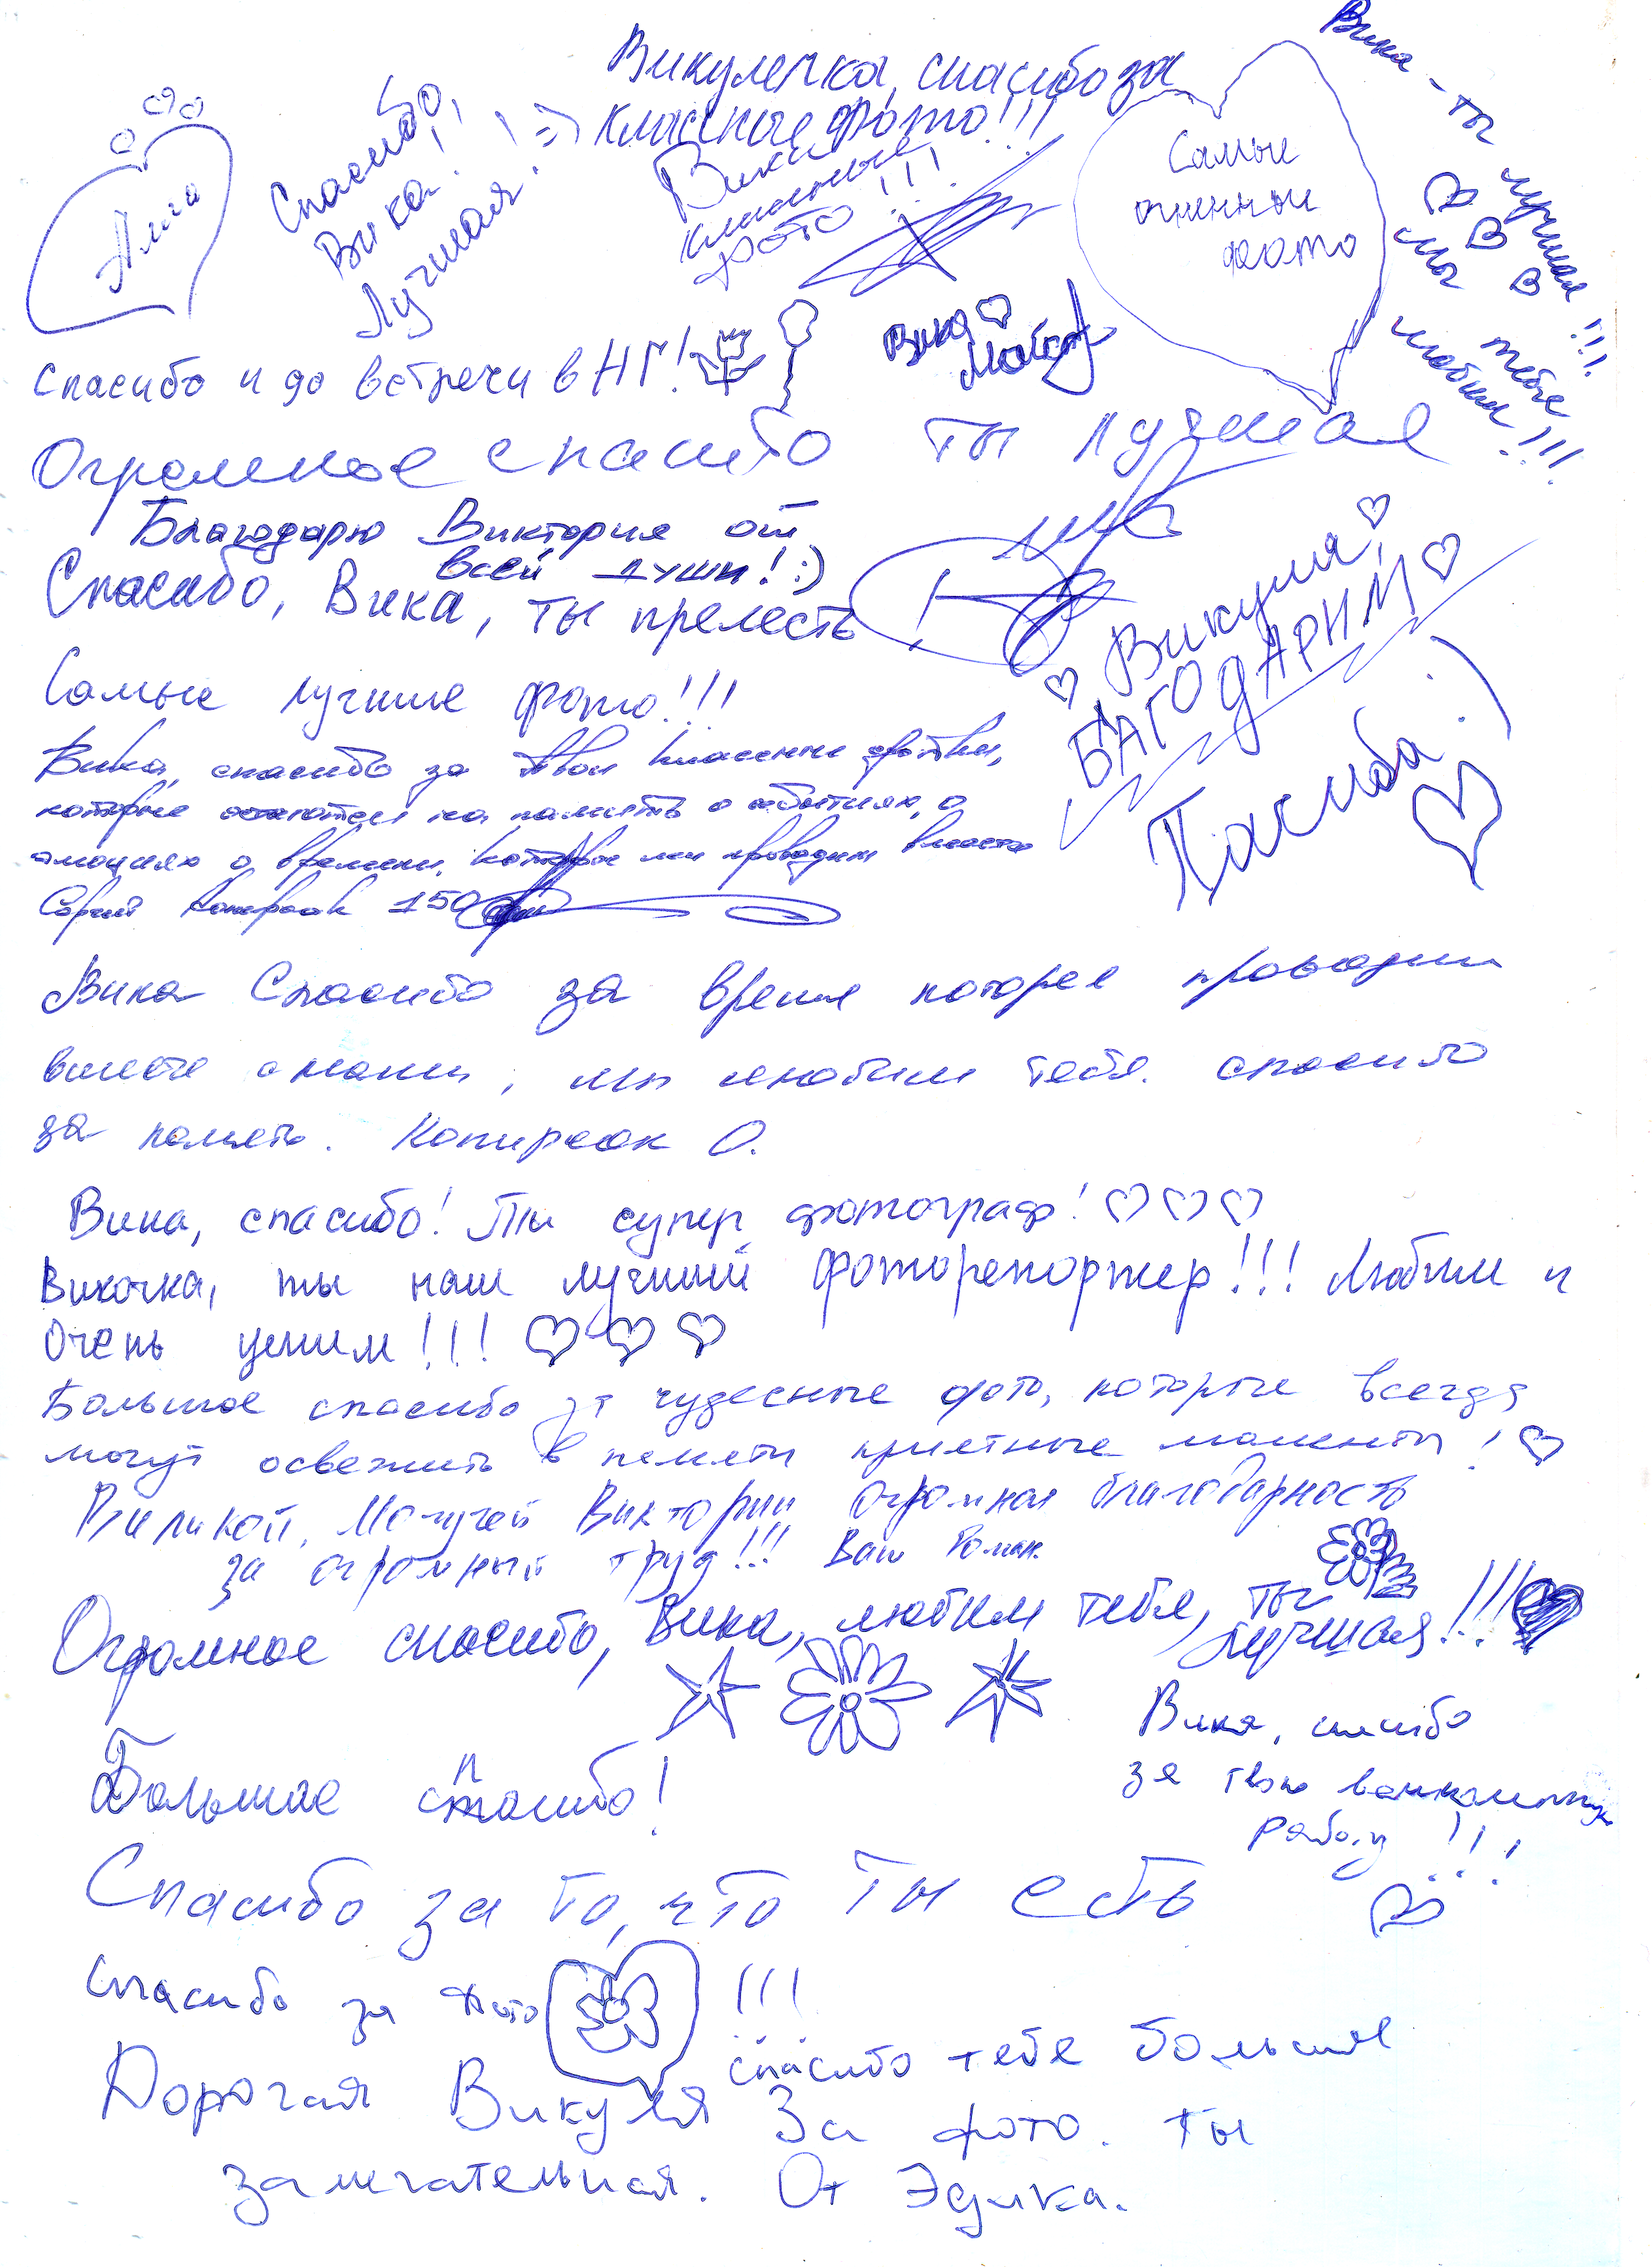 Викулечка, спасибо за
классные фото!!!
Спасибо,
Вика!
Лучшая! =)
Вики
классные
фото!!!
Самые
огненные
фото
Вика - ты лучшая!!!
мы тебя
любим!!!
Вика
Спасибо и до встречи в НГ!
Огромное спасибо ты лучшая
Благодарю Виктория от
всей души! :)
Спасибо, Вика, ты прелесть!
Викуля,
БЛАГОДАРИМ
Пасиба :)
Самые лучшие фото!!!
Вика, спасибо за твои классные фотки,
которые остаются на память о событиях, о
эмоциях о времени, которое мы проводим вместе
Копирсок 150
Вика Спасибо за время которое проводим
вместе с нами, мы любим тебя. спасибо
за память. Копирсок О.
Вика, спасибо! Ты супер фотограф!
Викочка, ты наш лучший фоторепортер!!! Любим и
очень ценим!!!
Большое спасибо за чудесные фото, которые всегда
могут освежить в памяти приятные моменты!
Великой, Могучей Виктории огромная благодарность
за огромный труд!!! Ваш Роман.
Огромное спасибо, Вика, любим тебя, ты
лучшая!!!
Вика, спасибо
за твою
работу!!!
Большое спасибо!
Спасибо за то, что ты есть
Спасибо за фото !!!
Дорогая Викуля спасибо тебе большое
за фото. Ты
замечательная. От Эдика.